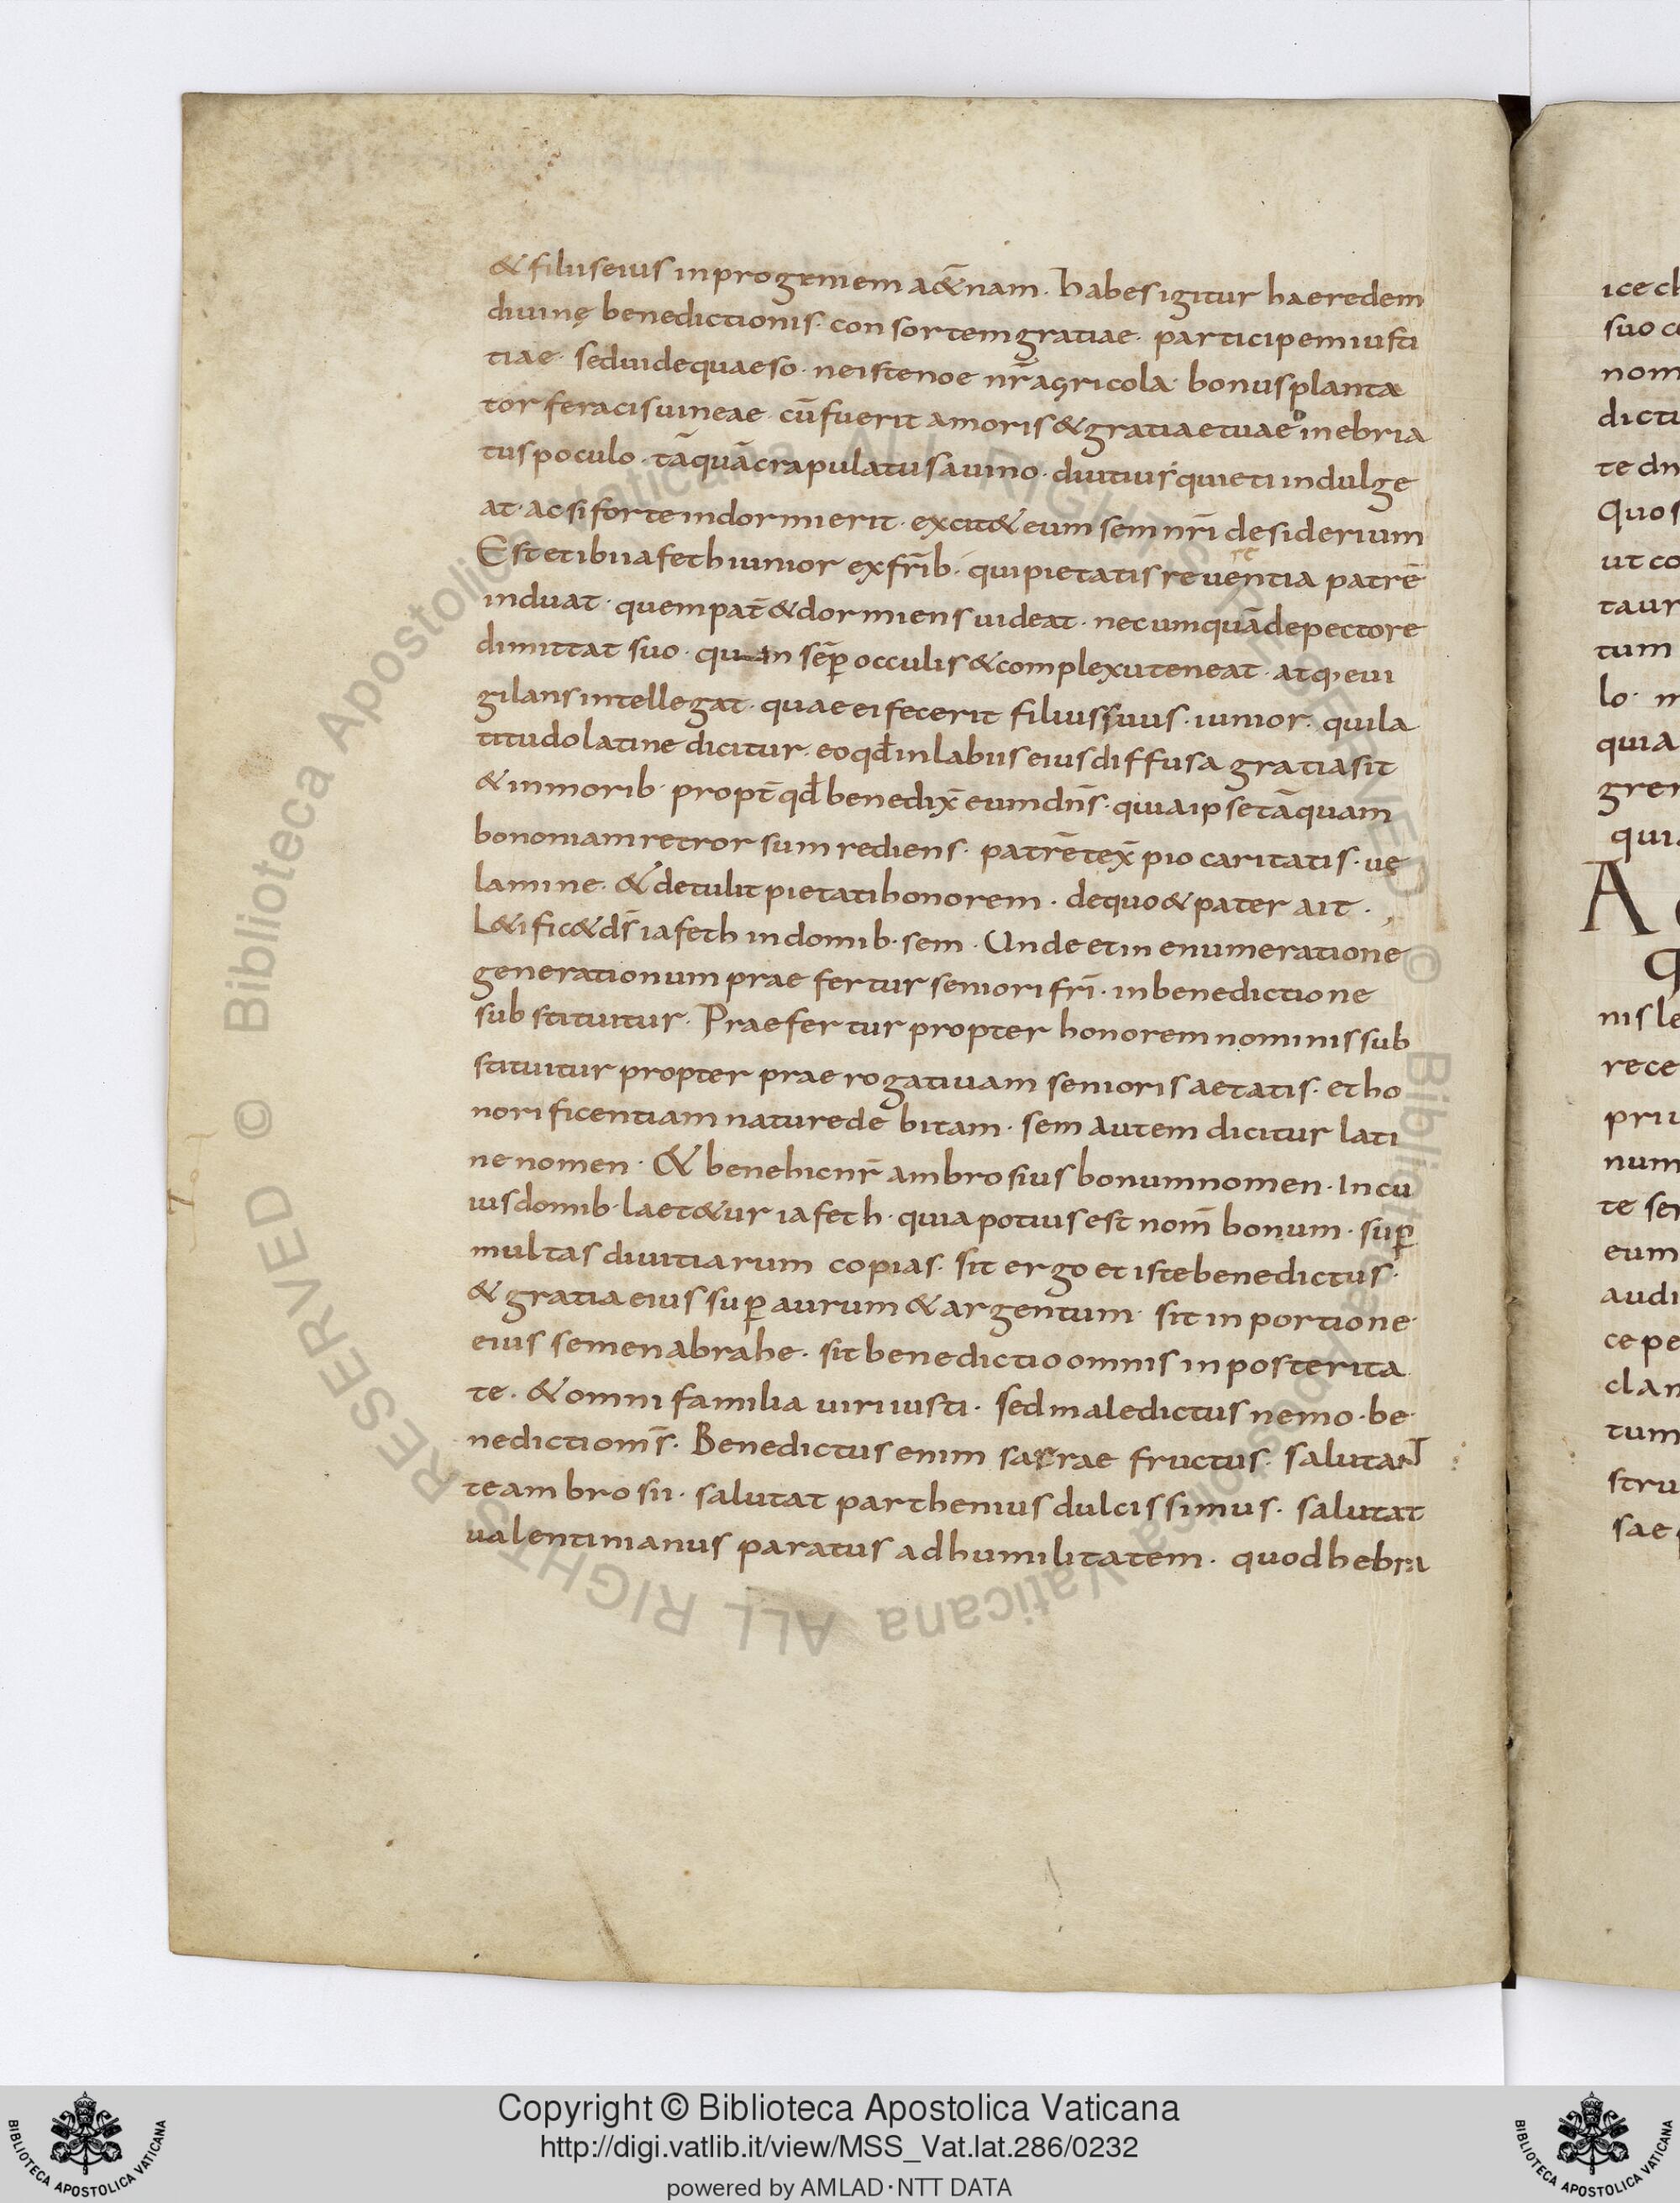 & filiis eius in progeniem a&̄nam. habes igitur haeredem
diuinę benedictionis. consortem gratiae. participem iusti
tiae. sed uide quaeso. ne iste noe nr̄ agricola. bonus planta
tor feracis uineae. cū fuerit amoris & gratiae tuae inebria
tus poculo. tāquā crapulatus a uino. diutius quieti indulge
at. ac si forte indormierit. excit& eum sem nr̄i desiderium
Est et ibi iafeth iunior ex fr̄ib. qui pietatis reuentia patrē
induat. quem pat̄ & dormiens uideat. nec umquā de pectore
dimittat suo. sēp̄ occulis & complexu teneat. atq; eui
gilans intellegat. quae ei fecerit filius suus. iunior. qui la
titudo latine dicitur. eo qd̄ in labiis eius diffusa gratia sit
& in morib. propt̄ qd̄ benedix̄ eum dn̄s. quia ipse tāquam
bononiam retrorsum rediens. patrē tex̄ pio caritatis. ue
lamine. & detulit pietati honorem. de quo & pater ait.
L&ific& ds̄ iafeth in domib. sem. Unde et in enumeratione
generationum praefertur seniori fr̄i. in benedictione
substituitur. Praefertur propter honorem nominis sub
stituitur propter praerogatiuam senioris aetatis. et ho
norificentiam nature debitam. sem autem dicitur lati
ne nomen. & bene hic nr̄ ambrosius bonum nomen. In cu
ius domib. laet&ur iafeth. quia potius est nom̄ bonum. sup̄
multas diuitiarum copias. sit ergo et iste benedictus.
& gratia eius sup̄ aurum & argentum. sit in portione
eius semen abrahe. sit benedictio omnis in posterita
te. & omni familia uiri iusti. sed maledictus nemo. be
nedictionis̄. Benedictus enim sacrae fructus. salutant
te ambrosii. salutat parthenius dulcissimus. salutat
ualentinianus paratus ad humilitatem. quod hebra
ice
suo
nom
dictu
te dn
Quos
ut co
taur
tum
lo.
quia
qui
A
nis le
rece
priu
num
te ser
eum
audi
ce pe
clam
tum
stru
sae
© Biblioteca Apostolica Vaticana ALL RIGHTS RESERVED
Copyright © Biblioteca Apostolica Vaticana
http://digi.vatlib.it/view/MSS_Vat.lat.286/0232
powered by AMLAD·NTT DATA
BIBLIOTECA APOSTOLICA VATICANA
BIBLIOTECA APOSTOLICA VATICANA